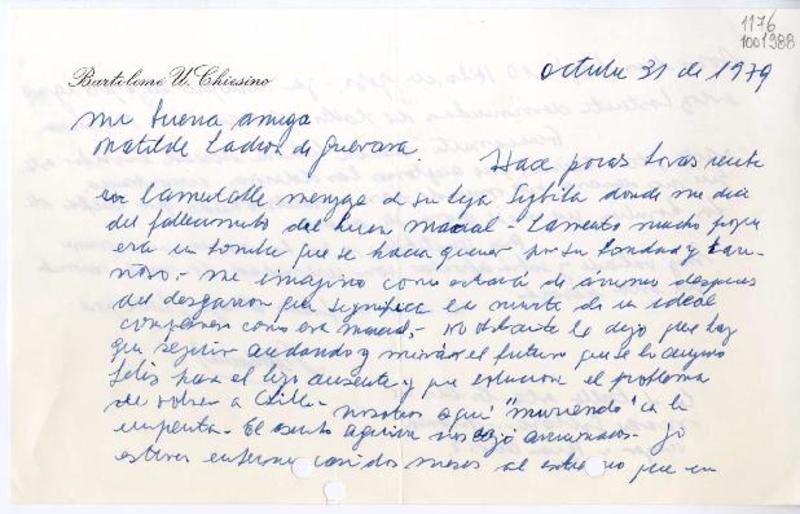 1176
1001988
Bartolomé U. Chiesino
octubre 31 de 1979
Mi buena amiga
Matilde Ladrón de Guevara.
Hace pocas horas recibí
lamentable mensaje de su hija Sybila donde me dice
del fallecimiento del buen Marcial - Lamento mucho porque
era un hombre que se hacía querer por su bondad y cari-
ñoso.- Me imagino como estará de ánimo despues
del desgarron que significa la muerte de un ideal
compañero como era Marcial,- no obstante le digo que hay
que seguir andando y mirar el futuro que se lo
feliz para el hijo ausente y que solucione el problema
de volver a Chile.- Nosotros aquí "muriendo" en la
imprenta. El asunto nos dejó arruinados. Yo
estuve enfermo casi dos meses al extremo que en